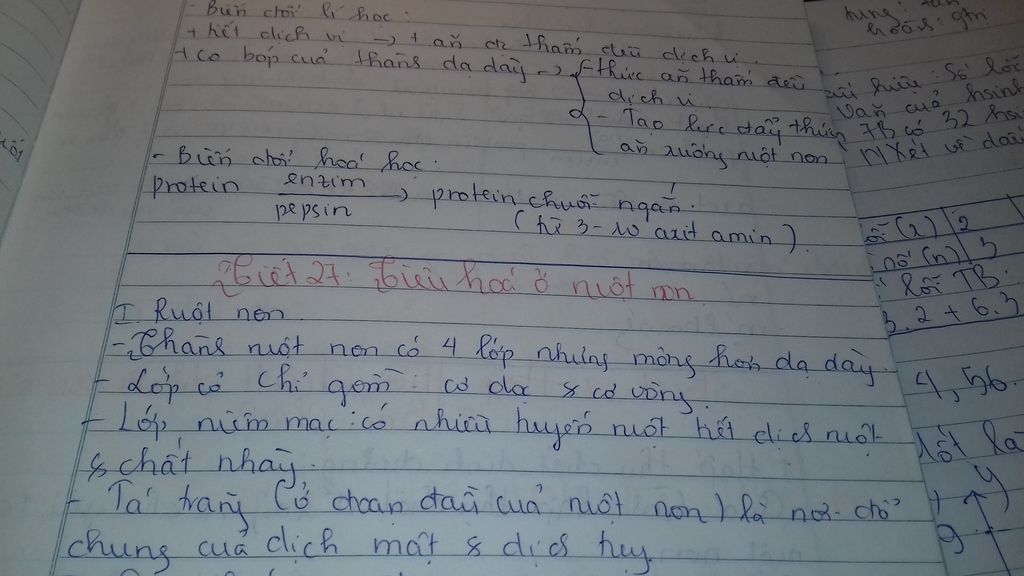 - Biến đổi lí học:
+ tiết dịch vị → + ăn đc thấm đều dịch vị.
+ co bóp của thành dạ dày → { - thức ăn thấm đều
dịch vị
- Tạo lực đẩy thức
ăn xuống ruột non
- Biến đổi hoá học:
protein enzim pepsin → protein chuỗi ngắn.
(từ 3-10 axit amin).
Tiết 27: Tiêu hoá ở ruột non
I Ruột non
- Thành ruột non có 4 lớp nhưng mỏng hơn dạ dày.
- Lớp cơ chỉ gồm: cơ dọc & cơ vòng.
- Lớp niêm mạc: có nhiều tuyến ruột tiết dịch ruột
& chất nhày.
- Tá tràng (ở đoạn đầu của ruột non) là nơi đổ
chung của dịch mật & dịch tuỵ.
Số lỗi
văn của hsinh
7B có 32 hsi
Nxét về dấu
lỗi (x) 2
(n) 3
lỗi TB:
3.2 + 6.3
4,56.
Mốt là
y
9